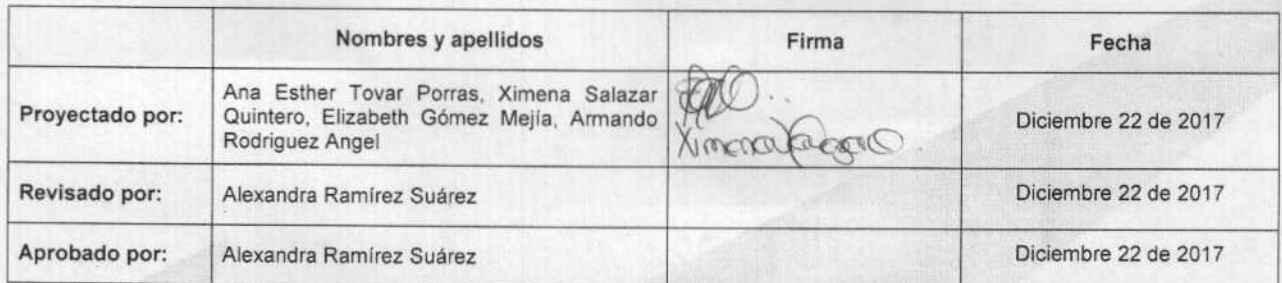 Nombres y apellidos Firma Fecha
Proyectado por: Ana Esther Tovar Porras, Ximena Salazar
Quintero, Elizabeth Gómez Mejía, Armando
Rodriguez Angel
Ximena
Diciembre 22 de 2017
Revisado por: Alexandra Ramírez Suárez Diciembre 22 de 2017
Aprobado por: Alexandra Ramírez Suárez Diciembre 22 de 2017